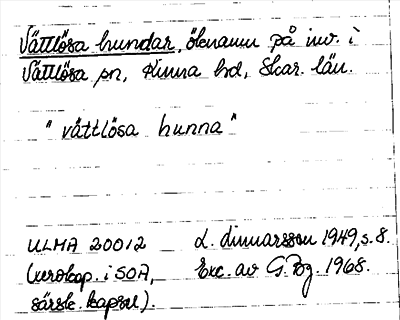 Vättlösa hundar, öknamn på inv. i
Vättlösa sn, Kinne hd, Skar. län.
"vättlösa hunna"
ULMA 20012 L. Linnarsson 1949, s. 8.
(xerokop. i SOA, Exc. av G. Bg. 1968.
särsk. kapsel).